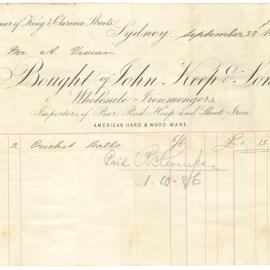 rner of King & Clarence Streets.
Sydney, September 30
Mr. A Vivian
Bought of John Keep & Son
Wholesale Ironmongers,
Importers of Bar, Rod, Hoop and Sheet Iron.
AMERICAN HARD & WOOD WARE.
2 Crochet Balls 5/6 £ 15
Paid
1.10.86